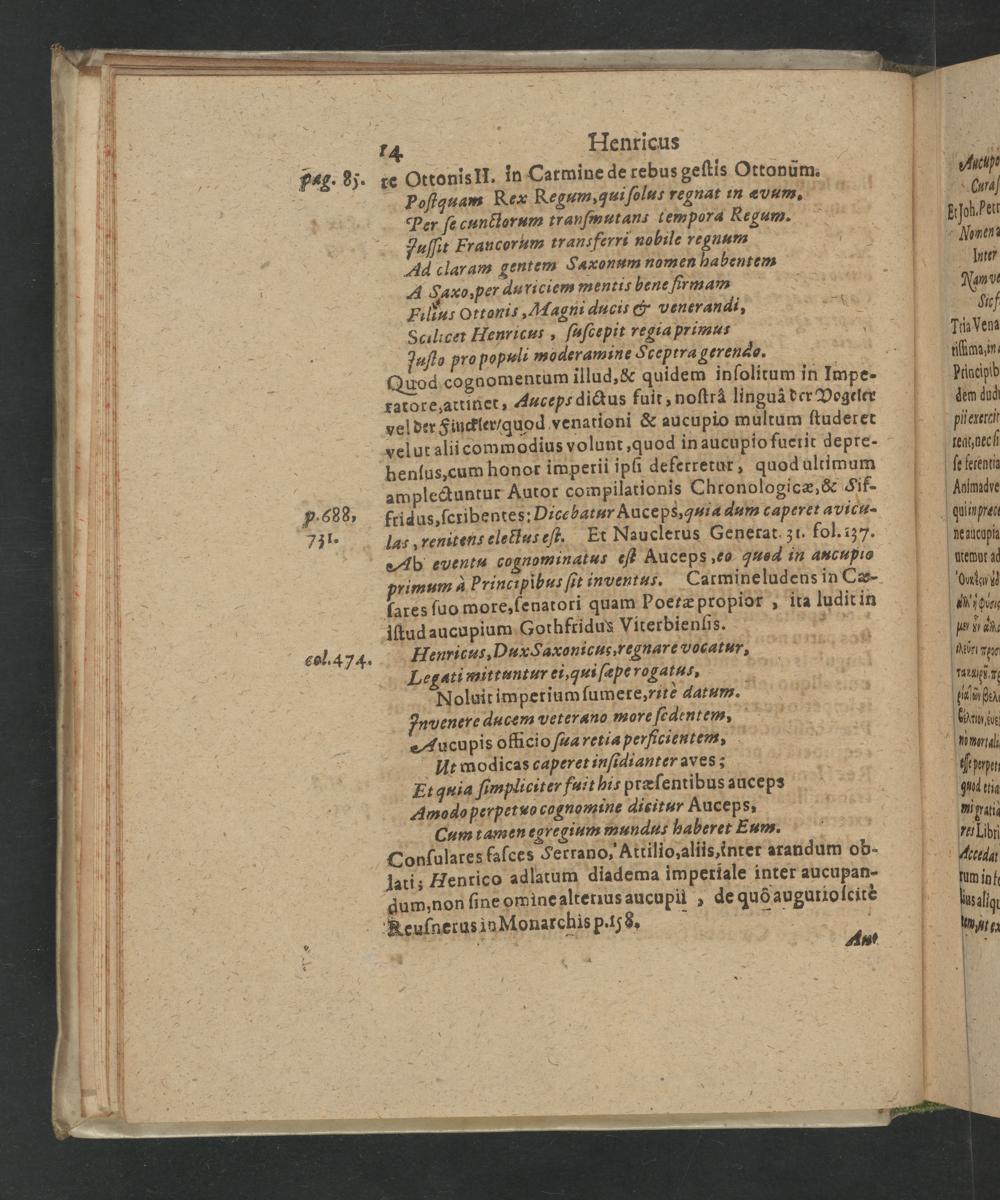 14 Henricus
pag. 85. te Ottonis II. in Carmine de rebus gestis Ottonūm.
Postquam Rex Regum, qui solus regnat in ævum,
Per se cunctorum transmutans tempora Regum.
Jussit Francorum transferri nobile regnum
Ad claram gentem Saxonum nomen habentem
A Saxo, per duriciem mentis bene firmam
Filius Ottonis, Magni ducis & venerandi,
Scilicet Henricus, suscepit regia primus
Justo pro populi moderamine Sceptra gerendo.
Quod cognomentum illud, & quidem insolitum in Impe-
ratore, attinet, Auceps dictus fuit, nostrâ linguâ der Vogeler
vel der Finckler/ quod venationi & aucupio multum studeret
vel ut alii commodius volunt, quod in aucupio fuerit depre-
hensus, cum honor imperii ipsi deferretur, quod ultimum
amplectuntur Autor compilationis Chronologicæ, & Sif-
p. 688, fridus, scribentes: Dicebatur Auceps, quia dum caperet avicu-
731. las, renitens electus est. Et Nauclerus Generat. 31. fol. 137.
Ab eventu cognominatus est Auceps, eo quod in aucupio
primum à Principibus sit inventus. Carmine ludens in Cæ-
sares suo more, senatori quam Poetæ propior, ita ludit in
istud aucupium Gothfridus Viterbiensis.
col. 474. Henricus, Dux Saxonicus, regnare vocatur,
Legati mittuntur ei, qui sæpe rogatus,
Noluit imperium sumere, ritè datum.
Invenere ducem veterano more sedentem,
Aucupis officio sua retia perficientem,
Ut modicas caperet insidianter aves;
Et quia simpliciter fuit his præsentibus auceps
Amodo perpetuo cognomine dicitur Auceps,
Cum tamen egregium mundus haberet Eum.
Consulares fasces Serrano, Attilio, aliis, inter arandum ob-
lati; Henrico adlatum diadema imperiale inter aucupan-
dum, non sine omine alterius aucupii, de quô augurio scitè
Reusnerus in Monarchis p. 158.
Aut
Aucupo
Et Joh. Petr
Nomen a
Inter
Nam ve
Tria Vena
Principib
dem dud
Animadve
ne aucupia
utemur ad
quod etia
res Libri
Accedat